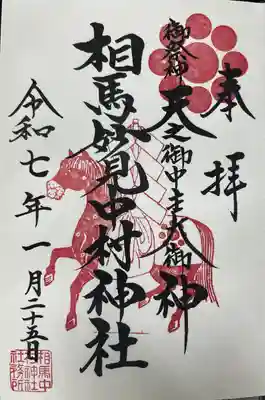 奉拝
御祭神
天之御中主大御神
相馬妙見中村神社
令和七年一月二十五日
相馬中
村神社
社務所